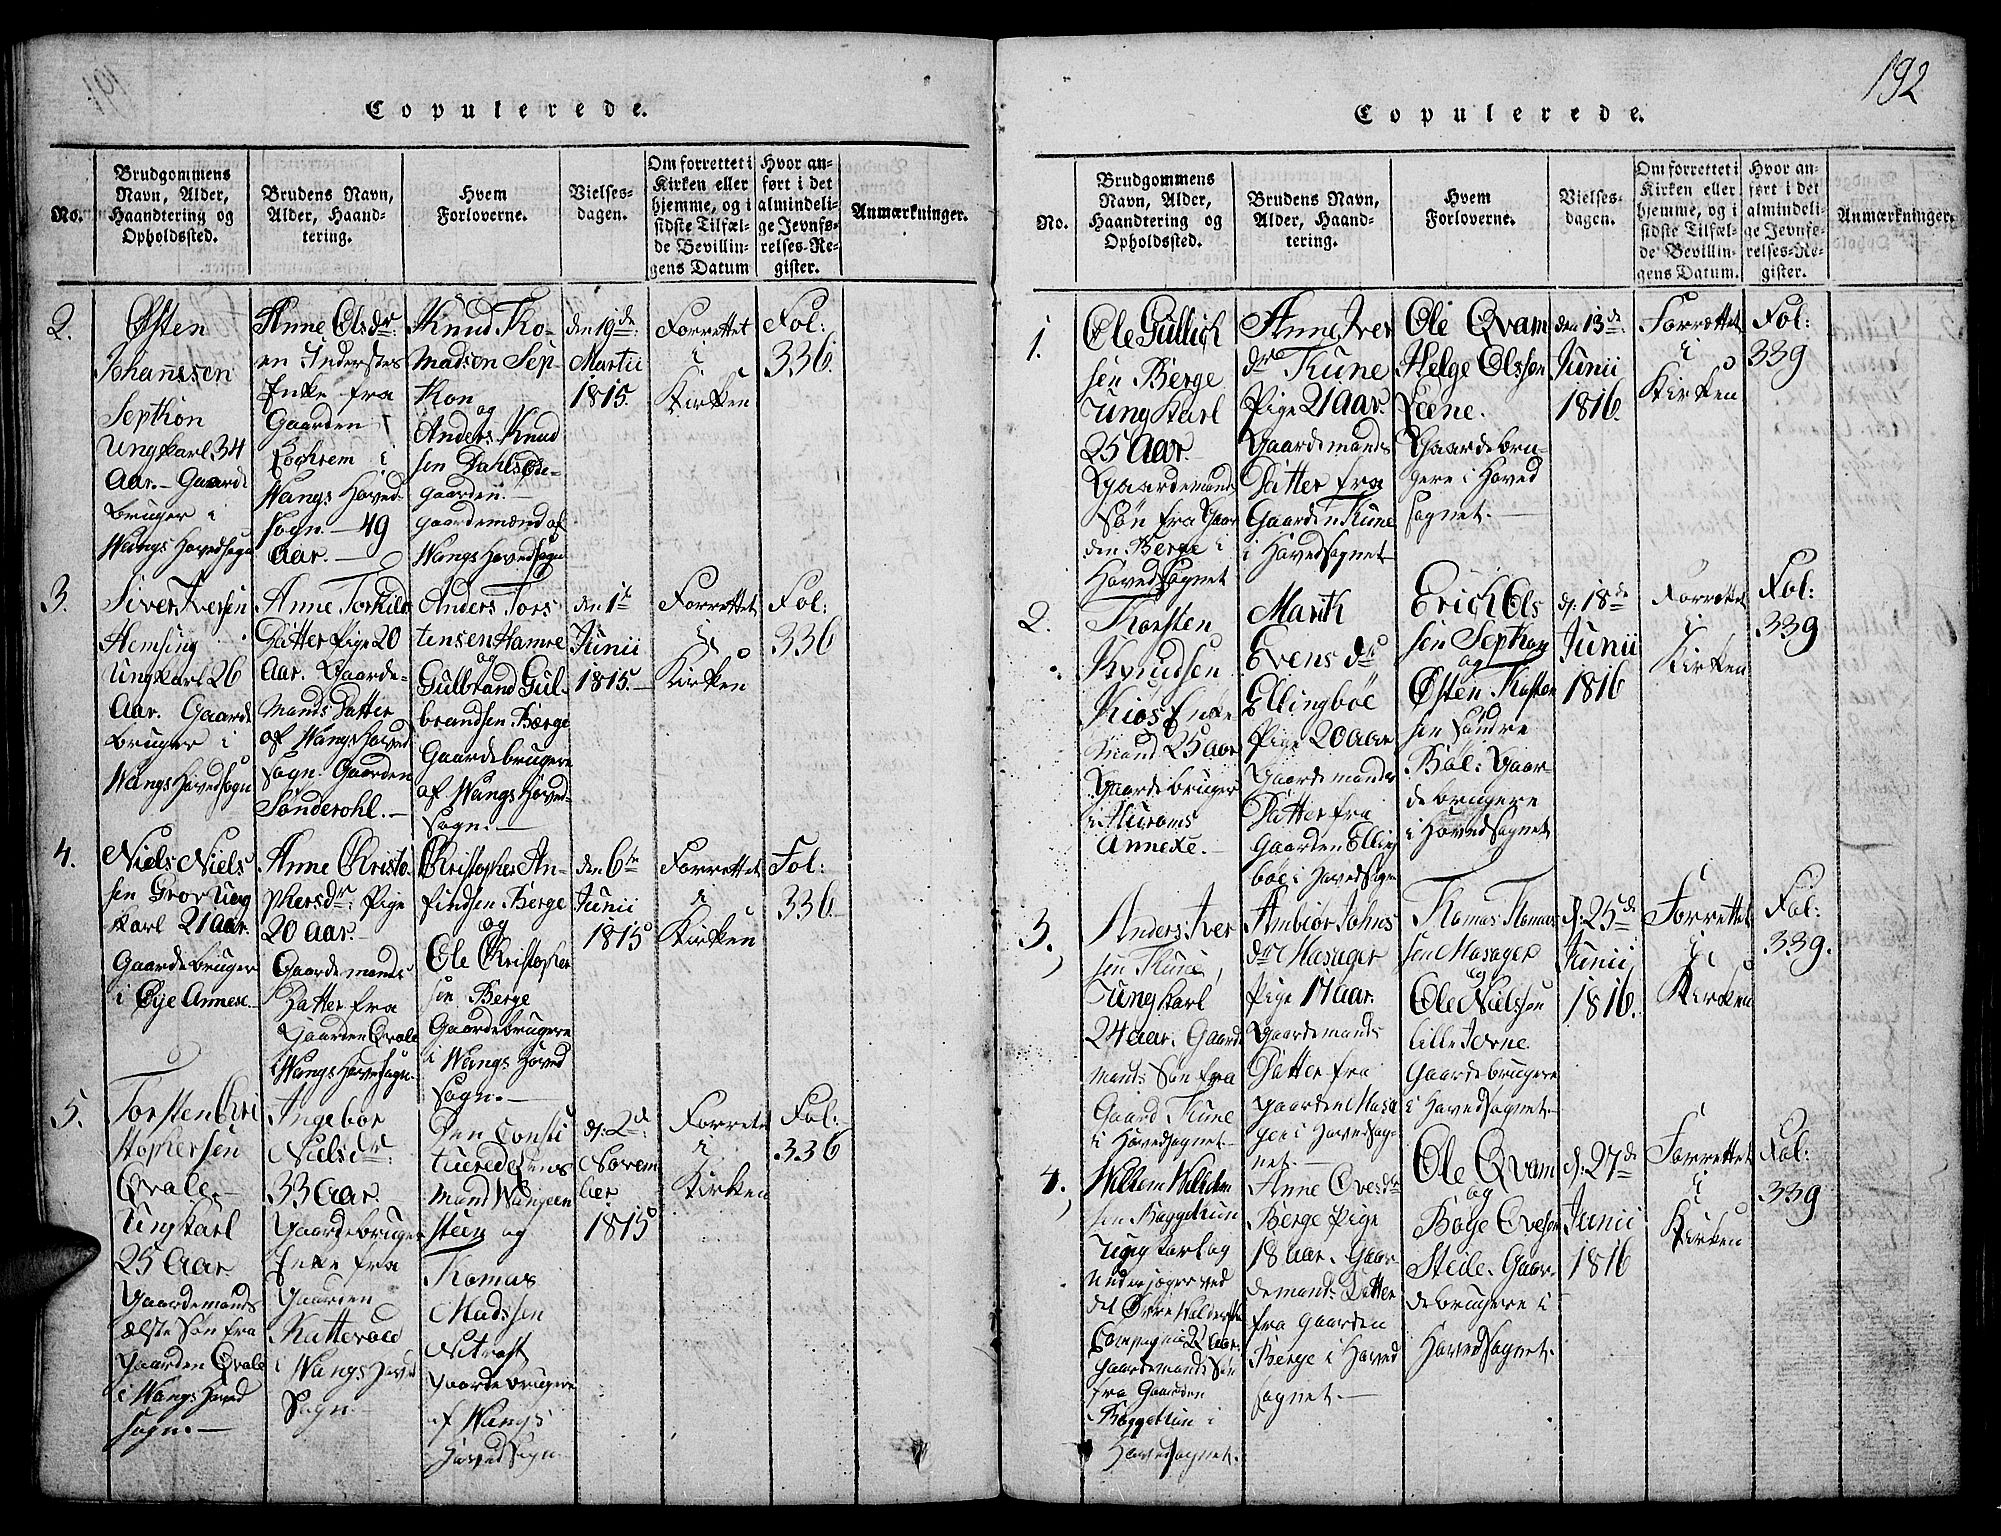 Copulerede.
No.
Brudgommens
Navn, Alder,
Haandtering og
Opholdssted.
Brudens Navn,
Alder, Haand-
tering.
Hvem
Forloverne.
Vielses-
dagen.
Om forrettet i
Kirken eller
hjemme, og i
sidste Tilfæl-
de Bevillin-
gens Datum
Hvor an-
ført i det
almindeli-
ge Jevnfø-
relses-Re-
gister.
Anmærkninger.
2.
Østen
Johanssen
Septhon
Ungkarl 34
Aar. - Gaarde
bruger i
Wangs Hovedsogn
Anne Olsdr:
en Inderstes
Enke fra
Gaarden
i
Wangs Hoved-
sogn. - 49
Aar. -
Knud Tho-
madsen Sep-
thon
og
Anders Knud
sen Dahls Øde-
gaarden. -
gaardemænd af
Wangs Hovedsogn
den 19de
Martii
1815.
Forrettet
i
Kirken
Fol:
336.
3.
Siver Iversen
Hemsing
Ungkarl 26
Aar. Gaarde
bruger i
Wangs Hovedsogn
Anne Torkilds
Datter Pige 20
Aar. Gaarde-
mands Datter
af Wangs Hoved
Sogn. Gaarden
Sønderohl. -
Anders Tors
tensen Hamre
og
Gulbrand Gul-
brandsen Berge
Gaardebrugere
af Wangs Hoved-
Sogn. -
den 1te
Junii
1815. -
Forrettet
i
Kirken
Fol:
336
4.
Niels Niels
sen Grov Ung
karl 21 aar.
Gaardebruger
i Øye Annexe. -
Anne Christo
phersdr: Pige
20 Aar.
Gaardemands
Datter fra
Gaarden Qvale
Wangs Hovedsogn.
Christopher An-
findsen Berge
og
Ole Christopher
sen Berge
Gaardebrugere
i Wangs Hoved
Sogn. -
den 6te
Junii
1815
Forrettet
i
Kirken
Fol:
336.
5.
Torsten Cri
stophersen
Qvale, -
Ungkarl
25 Aar.
Gaardemands
ælste Søn fra
Gaarden Qvale
i Wangs Hoved
sogn. -
Ingebor
Nielsdr:
33 Aar.
Gaardebruger
Enke fra
Gaarden
Kattevold
i Wangs Hoved
Sogn. -
Den Consti
tuerede Lens
mand Wangeen
steen og
Thomas
Madssen
Gaardebrugere
af Wangs
Hovedsogn.
d: 2de:
Novem
ber
1815
Forrettet
i
Kirken
Fol:
336
192
Copulerede.
No.
Brudgommens
Navn, Alder,
Haandtering og
Opholdssted.
Brudens Navn,
Alder, Haand-
tering.
Hvem
Forloverne.
Vielses-
dagen.
Om forrettet i
Kirken eller
hjemme, og i
sidste Tilfæl-
de Bevillin-
gens Datum.
Hvor an-
ført i det
almindeli-
ge Jevnfø-
relses-Re-
gister.
Anmærkninger.
1.
Ole Gullich
sen Berge
Ungkarl
25 Aar.
Gaardemands
Søn fra Gaar
den Berge i
Hovedsognet
Anne Iver
dr Thune
Pige 21 aar.
Gaardemands
Datter fra
Gaarden Thune
i Hovedsognet
Ole Qvam
Helge Olssen
Leene.
Gaardebru-
gere i Hoved
sognet. -
den 13de:
Junii
1816.
Forrettet
i
Kirken
Fol:
339
2.
Thorsten
Knudsen
Kiøs Enke-
mand 25 aar
Gaardebruger
i Hurums
Annexe. -
Marith
Evens dr
Ellingbøe
Pige 20 aar
Gaardemands
Datter fra
Gaarden Elling
bøe i Hovedsogn
Erich Ols
sen Septhon
og
Østen Thosten
sen Søndre
Bøl: Gaar-
debrugere
i Hovedsognet
d: 18de
Junii
1816
Forrettet
i
Kirken
Fol:
339
3.
Anders Iver
sen Thune,
Ungkarl
24 aar. Gaarde
mands Søn fra
Gaard Thune
i Hovedsognet -
Ambiør Johns
dr Hasager
Pige 17 aar.
Gaardemands
Datter fra
Gaarden Hasa
ger i Hovedsog-
net. -
Thomas Thomas
sen Hasager
og
Ole Nielssen
Lille Jerne
Gaardebrugere
i Hovedsognet
d: 25de
Junii
1816.
Forrettet
i
Kirken
Fol:
339.
4.
Wilhem Wilhelm
sen Baggetuun
Ungkarl og
Underjæger ved
det
Compagnie 22 aar.
Gaardemands Søn
fra Gaarden
Baggetuun i
Hovedsognet.
Anne Ovesdr
Berge Pige
18 aar. Gaar-
demands Datter
fra Gaarden
Berge i Hoved
sognet. -
Ole Qvam
og
Boye Ovesen
Steile. Gaar-
debrugere i
Hovedsognet.
d: 27de
Junii
1816
Forrettet
i
Kirken
Fol:
339